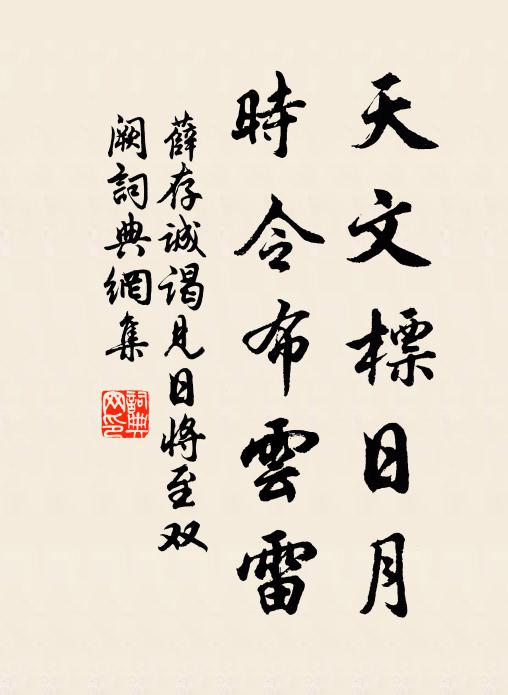 天文標日月
時令布雲雷
薛存诚谒見日将至双
阙詞典網集
詞典
网印